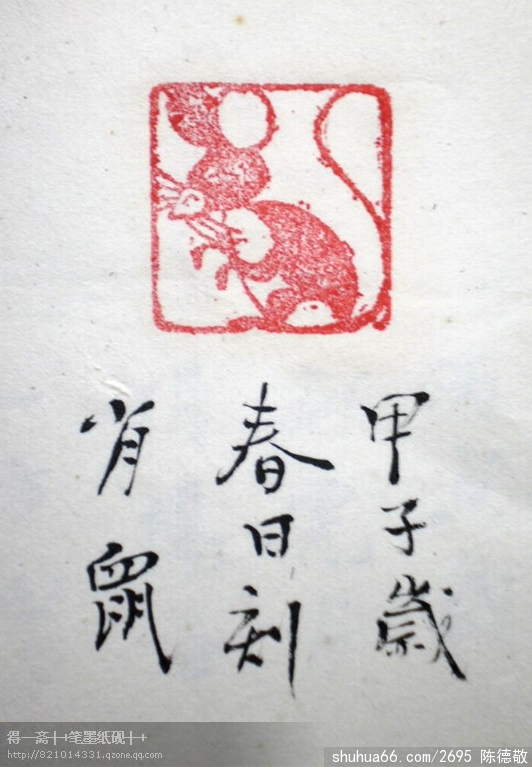 甲子歲
春日刻
肖鼠
得一斋╂┽笔墨纸砚╂┽
http://821014331.qzone.qq.com
shuhua66.com/2695 陈德敬